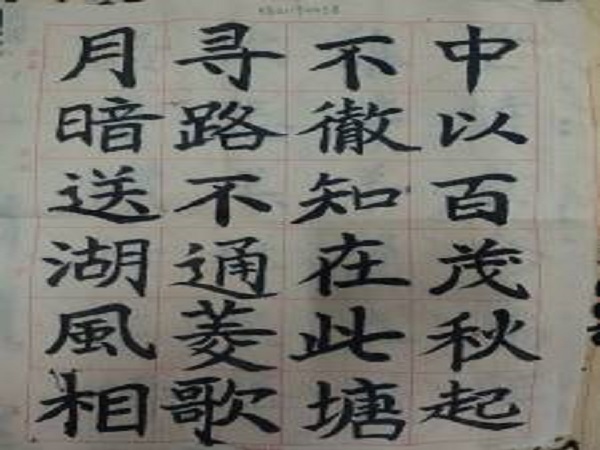 月暗送湖風相
寻路不通菱歌
不徹知在此塘
中以百茂秋起